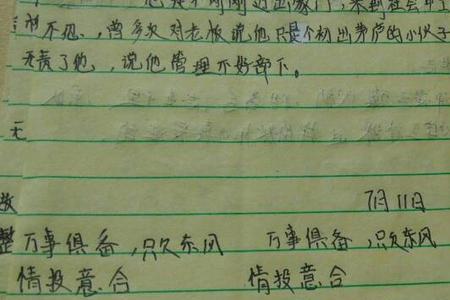 不忍，曾多次对老板说他只是个初出茅庐的小伙子
无责了他，说他管理不好部下。
无
7月11日
万事俱备，只欠东风 万事俱备，只欠东风
情投意合 情投意合